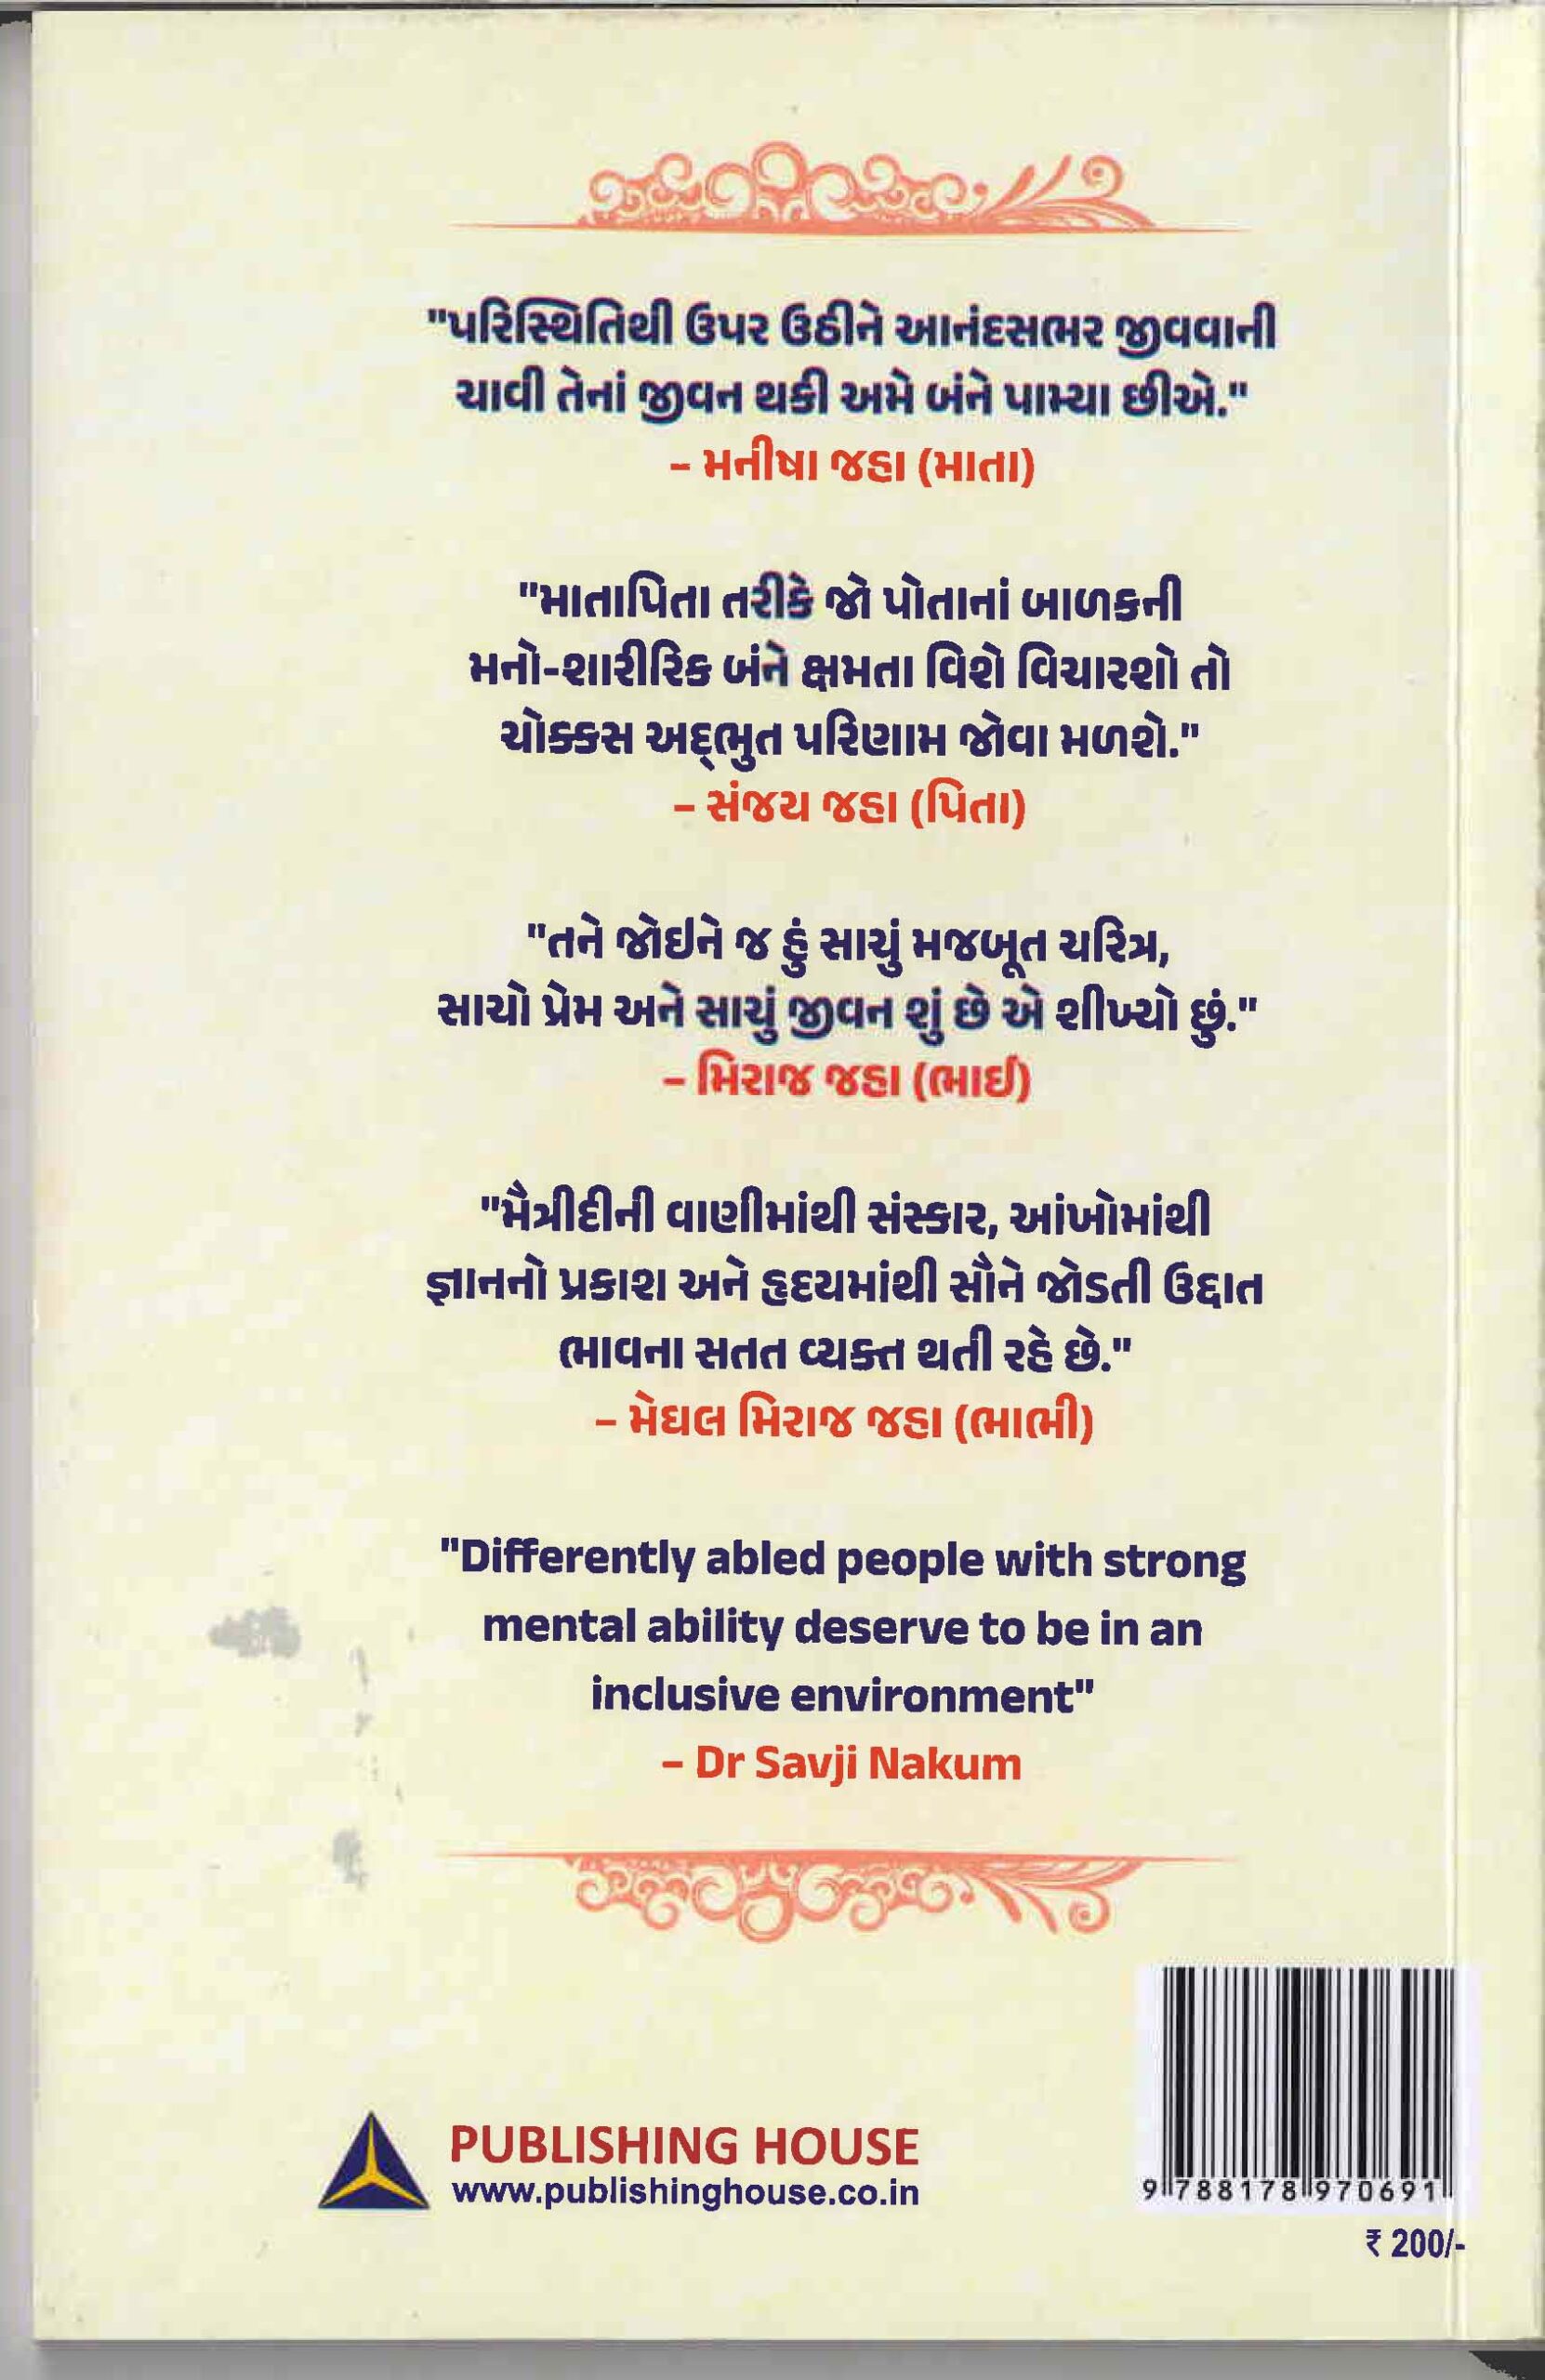 "પરિસ્થિતિથી ઉપર ઉઠીને આનંદસભર જીવવાની
ચાવી તેનાં જીવન થકી અમે બંને પામ્યા છીએ."
– મનીષા જહા (માતા)
"માતાપિતા તરીકે જો પોતાનાં બાળકની
મનો-શારીરિક બંને ક્ષમતા વિશે વિચારશો તો
ચોક્કસ અદ્ભુત પરિણામ જોવા મળશે."
– સંજય જહા (પિતા)
"તને જોઇને જ હું સાચું મજબૂત ચરિત્ર,
સાચો પ્રેમ અને સાચું જીવન શું છે એ શીખ્યો છું."
– મિરાજ જહા (ભાઈ)
"મૈત્રીદીની વાણીમાંથી સંસ્કાર, આંખોમાંથી
જ્ઞાનનો પ્રકાશ અને હૃદયમાંથી સૌને જોડતી ઉદ્દાત
ભાવના સતત વ્યક્ત થતી રહે છે."
– મેઘલ મિરાજ જહા (ભાભી)
"Differently abled people with strong
mental ability deserve to be in an
inclusive environment"
– Dr Savji Nakum
PUBLISHING HOUSE
www.publishinghouse.co.in
9 788178 970691
₹ 200/-